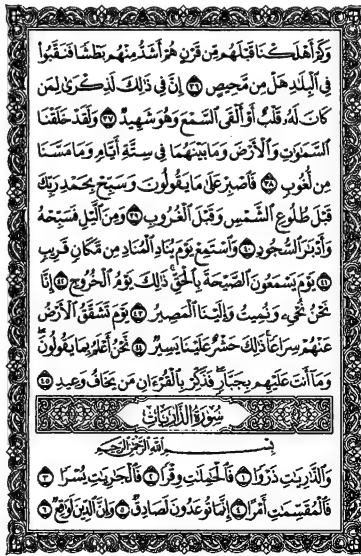 وَكَمْ أَهْلَكْنَا قَبْلَهُم مِّن قَرْنٍ هُمْ أَشَدُّ مِنْهُم بَطْشًا فَنَقَّبُوا
فِي الْبِلَادِ هَلْ مِن مَّحِيصٍ ٣٦ إِنَّ فِي ذَٰلِكَ لَذِكْرَىٰ لِمَن
كَانَ لَهُ قَلْبٌ أَوْ أَلْقَى السَّمْعَ وَهُوَ شَهِيدٌ ٣٧ وَلَقَدْ خَلَقْنَا
السَّمَاوَاتِ وَالْأَرْضَ وَمَا بَيْنَهُمَا فِي سِتَّةِ أَيَّامٍ وَمَا مَسَّنَا
مِن لُّغُوبٍ ٣٨ فَاصْبِرْ عَلَىٰ مَا يَقُولُونَ وَسَبِّحْ بِحَمْدِ رَبِّكَ
قَبْلَ طُلُوعِ الشَّمْسِ وَقَبْلَ الْغُرُوبِ ٣٩ وَمِنَ اللَّيْلِ فَسَبِّحْهُ
وَأَدْبَارَ السُّجُودِ ٤٠ وَاسْتَمِعْ يَوْمَ يُنَادِ الْمُنَادِ مِن مَّكَانٍ قَرِيبٍ
٤١ يَوْمَ يَسْمَعُونَ الصَّيْحَةَ بِالْحَقِّ ذَٰلِكَ يَوْمُ الْخُرُوجِ ٤٢ إِنَّا
نَحْنُ نُحْيِي وَنُمِيتُ وَإِلَيْنَا الْمَصِيرُ ٤٣ يَوْمَ تَشَقَّقُ الْأَرْضُ
عَنْهُمْ سِرَاعًا ذَٰلِكَ حَشْرٌ عَلَيْنَا يَسِيرٌ ٤٤ نَّحْنُ أَعْلَمُ بِمَا يَقُولُونَ
وَمَا أَنتَ عَلَيْهِم بِجَبَّارٍ فَذَكِّرْ بِالْقُرْآنِ مَن يَخَافُ وَعِيدِ ٤٥
سُورَةُ الذَّارِيَاتِ
بِسْمِ اللَّهِ الرَّحْمَٰنِ الرَّحِيمِ
وَالذَّارِيَاتِ ذَرْوًا ١ فَالْحَامِلَاتِ وِقْرًا ٢ فَالْجَارِيَاتِ يُسْرًا ٣
فَالْمُقَسِّمَاتِ أَمْرًا ٤ إِنَّمَا تُوعَدُونَ لَصَادِقٌ ٥ وَإِنَّ الدِّينَ لَوَاقِعٌ ٦